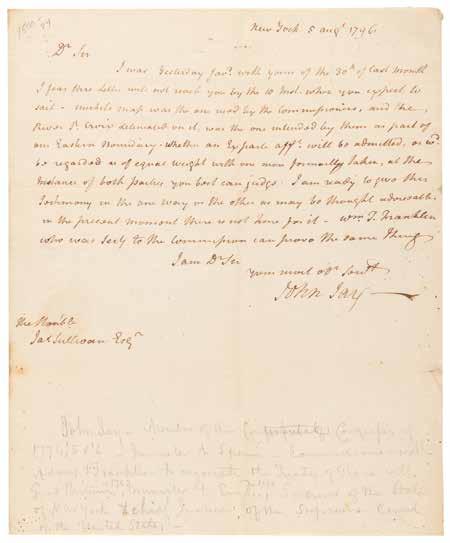 New York 5 augt. 1796
Dr Sir
I was Yesterday favd. with yours of the 30th of last month
I fear this Letter will not reach you by the 10 Inst. when you expect to
sail - mitchels map was the one used by the Commissioners, and the
River St. Croix delineated on it, was the one intended by them as part of
our Eastern Boundary - whether an Exparte afft. will be admitted, or wd.
be regarded as of equal weight with one more formally taken, at the
Instance of both parties you best can judge. I am ready to give this
Testimony in the one way or the other as may be thought adviseable
in the present moment there is not time for it - Wm. T. Franklin
who was Secy to the Commission can prove the same Thing
I am Dr Sir
your most obt. Servt
John Jay
The Honble
Jas Sullivan Esqr
John Jay - Member of the Continental Congress of
1774, 5 & 6 - minister to Spain - Commissioner with
Adams & Franklin to negociate the Treaty of Peace with
Great Britain 1783, minister to Engd., Governor of the State
of New York & chief Justice of the Supreme Court
of the United States, -